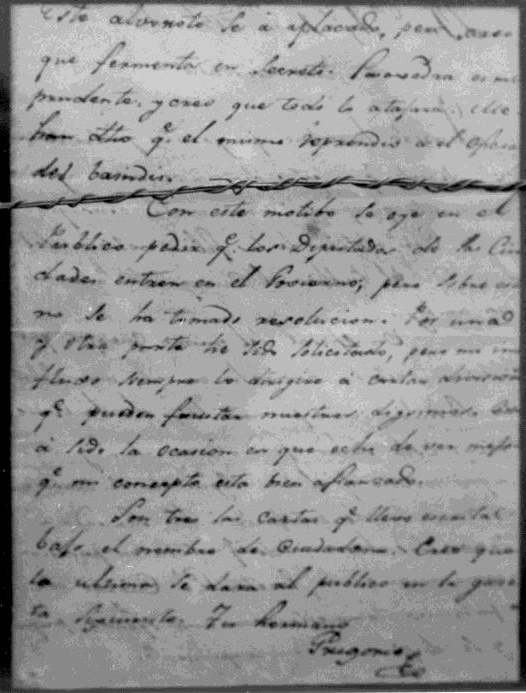 Este alvoroto se á aplacado, pero creo
que fermenta en secreto. Saavedra es mui
prudente, y creo que todo lo atajará. Me
han dho q.e el mismo reprendió a el
del
Con este motibo se oye en el
Publico pedir q.e los Diputados de las Ciu
dades entren en el Govierno, pero sobre esto
no se ha tomado resolucion. Por una
y otra parte he sido solicitado, pero mi in
fluxo siempre lo dirigire á cortar divisiones
q.e puedan frustar nuestros designios.
á sido la ocasion en que eche de ver mejor
q.e mi concepto esta bien afianzado.
Son tres las cartas q.e llevo escritas
bajo el nombre de Ciudadano. Creo que
la ultima se dara al publico en la gace
ta siguiente. Tu hermano
Gregorio